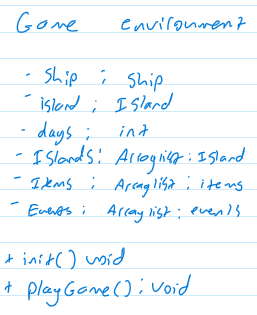 Game environment
- Ship : Ship
- island : Island
- days : int
- Islands : Arraylist : Island
- Items : Arraylist : items
- Events : Arraylist : events
+ init() void
+ playGame() : void